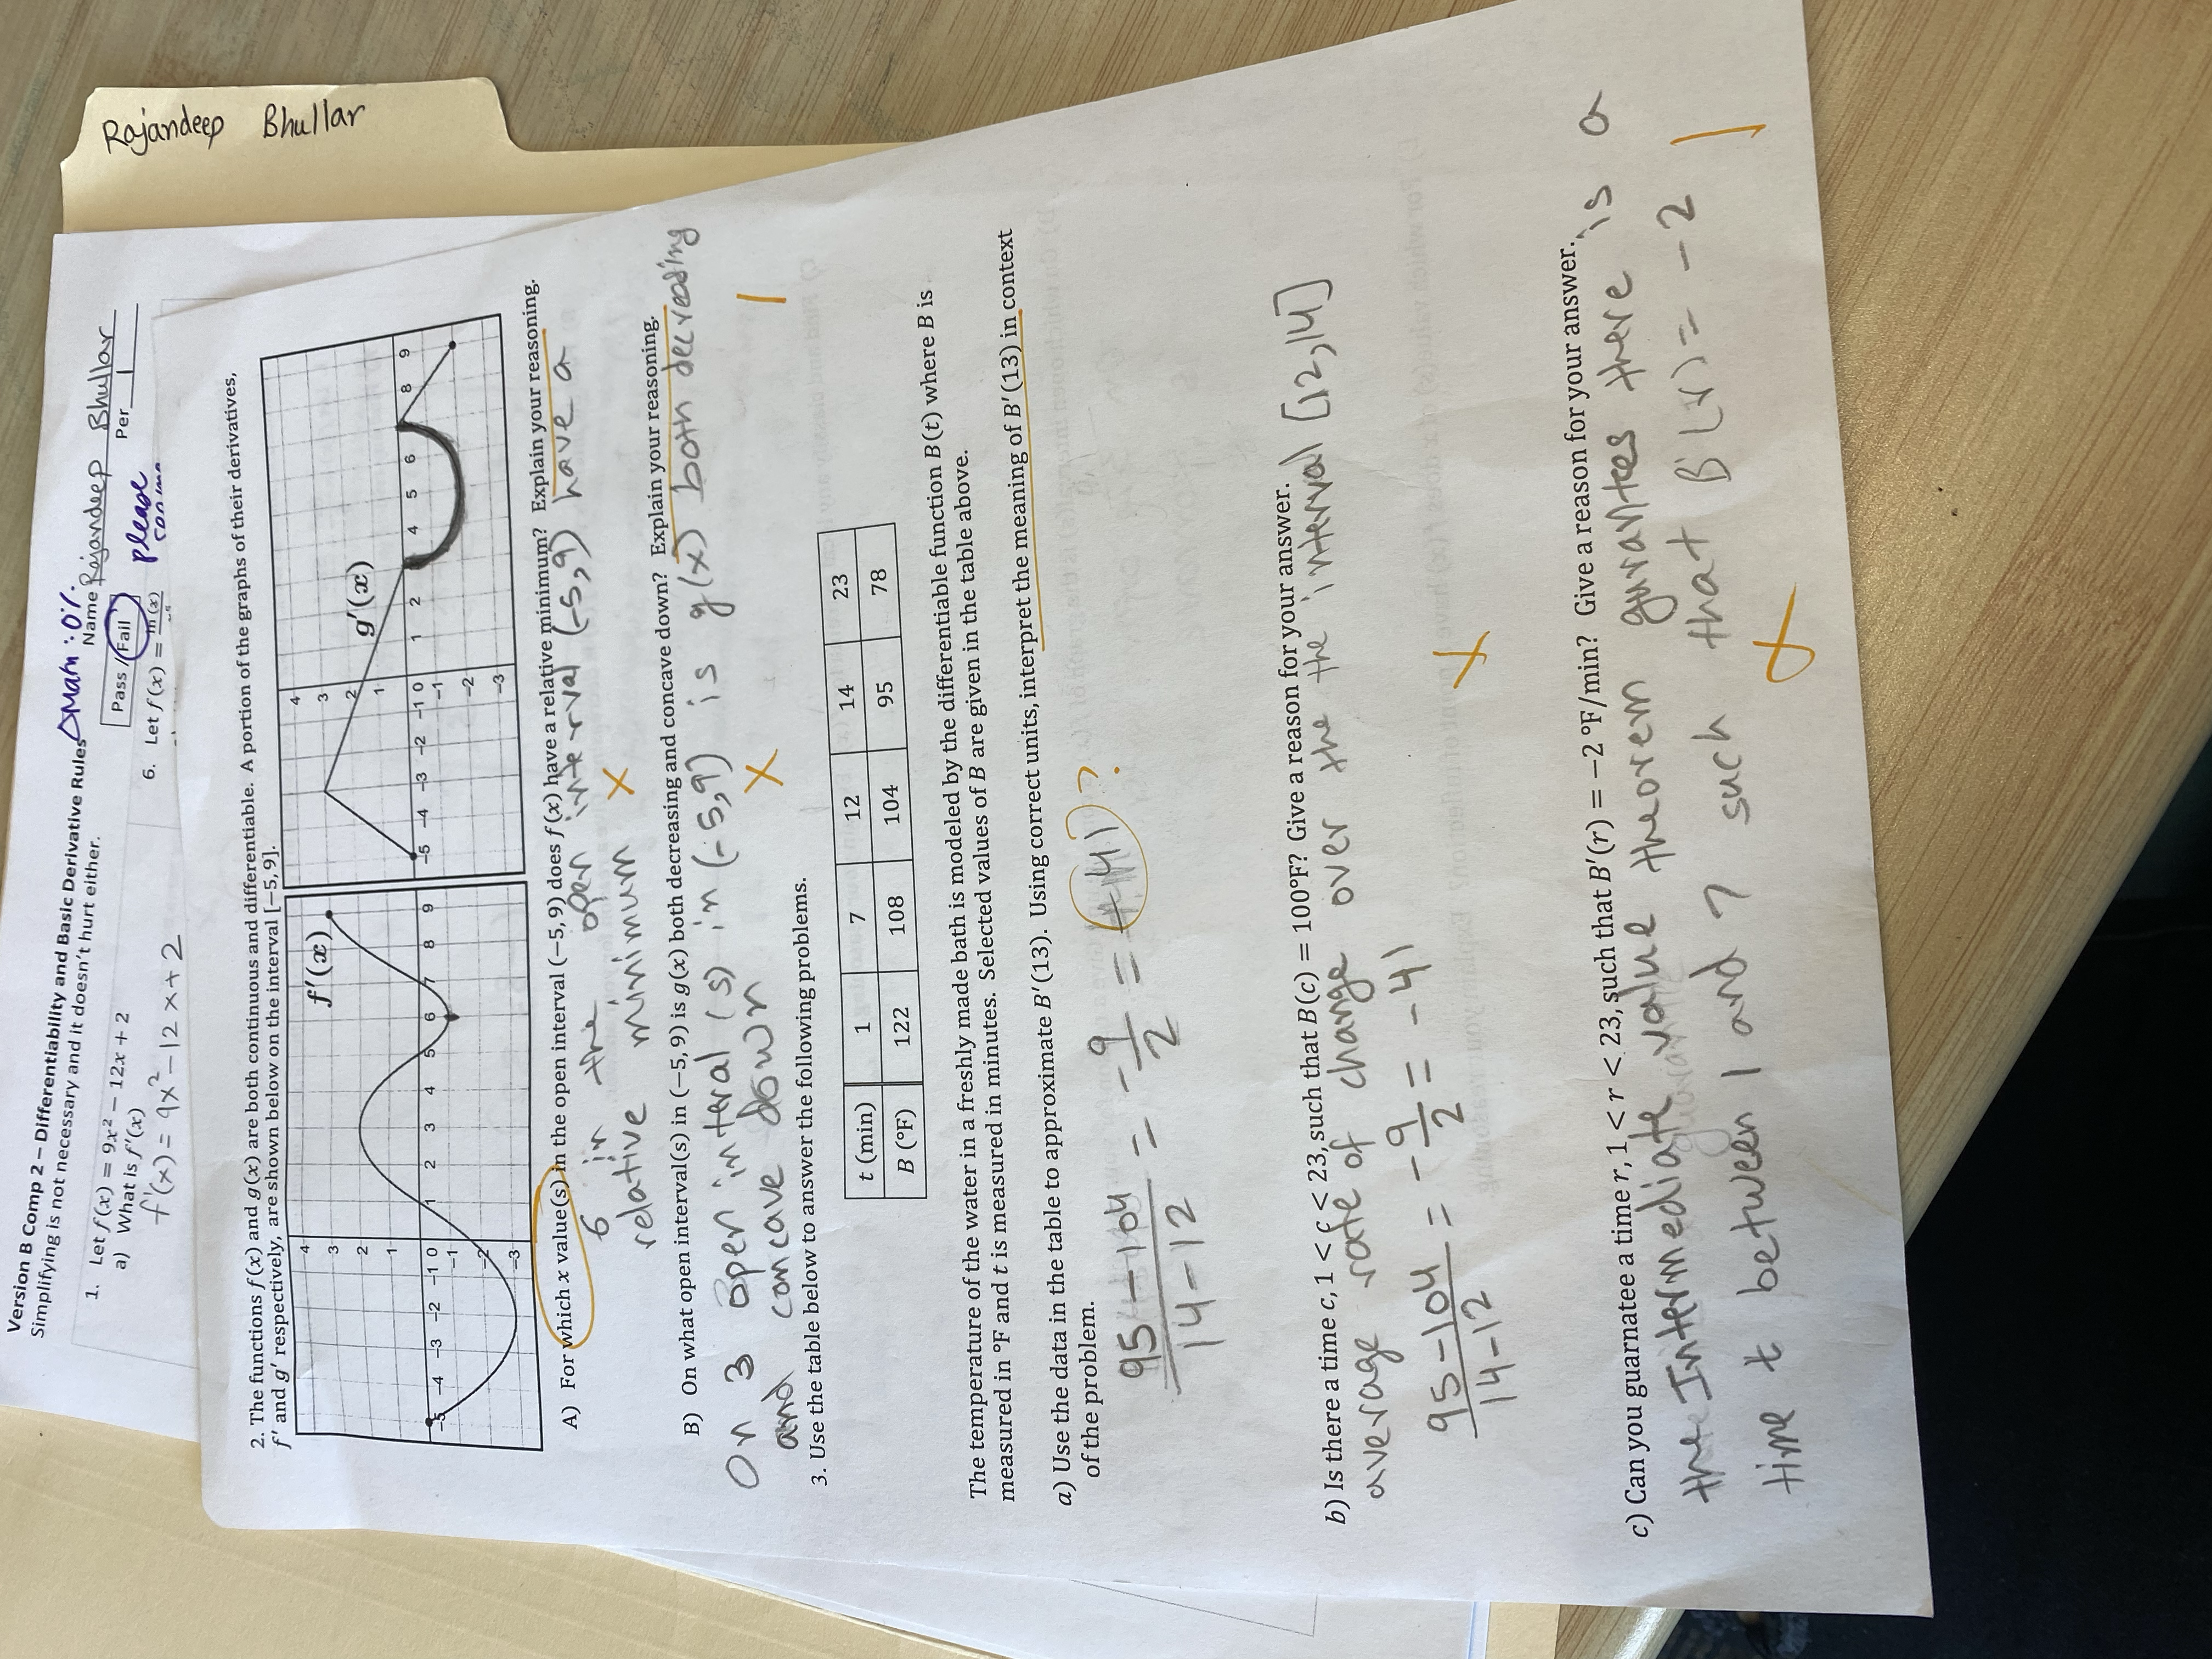 Rajandeep Bhullar
Version B Comp 2 – Differentiability and Basic Derivative Rules
Math : 0%
Name Rajandeep Bhullar
Simplifying is not necessary and it doesn't hurt either.
Pass / Fail
Per 1
please
1. Let f(x) = 9x² − 12x + 2
6. Let f(x) =
a) What is f′(x)
f'(x) = 9x² − 12x + 2
2. The functions f(x) and g(x) are both continuous and differentiable. A portion of the graphs of their derivatives,
f′ and g′ respectively, are shown below on the interval [−5, 9].
f′(x)
4
3
2
1
−5 −4 −3 −2 −1 0 1 2 3 4 5 6 7 8 9
−1
−2
−3
g′(x)
4
3
2
1
−5 −4 −3 −2 −1 0 1 2 4 5 6 8 9
−1
−2
−3
A) For which x value(s) in the open interval (−5, 9) does f(x) have a relative minimum? Explain your reasoning.
6 in the open interval (-5,9) have a
relative minimum
B) On what open interval(s) in (−5, 9) is g(x) both decreasing and concave down? Explain your reasoning.
On 3 open interal(s) in (-5,9) is g(x) both decreasing
and concave down
3. Use the table below to answer the following problems.
t (min) 1 7 12 14 23
B (°F) 122 108 104 95 78
The temperature of the water in a freshly made bath is modeled by the differentiable function B(t) where B is
measured in °F and t is measured in minutes. Selected values of B are given in the table above.
a) Use the data in the table to approximate B′(13). Using correct units, interpret the meaning of B′(13) in context
of the problem.
95-104 / 14-12 = -9/2 = -41 ?
b) Is there a time c, 1 < c < 23, such that B(c) = 100°F? Give a reason for your answer.
average rate of change over the the interval [12,14]
95-104 / 14-12 = -9/2 = -41
c) Can you guarnatee a time r, 1 < r < 23, such that B′(r) = −2 °F/min? Give a reason for your answer.
the Intermediate value theorem gurantees there is a
time t between 1 and 7 such that B'(r) = -2